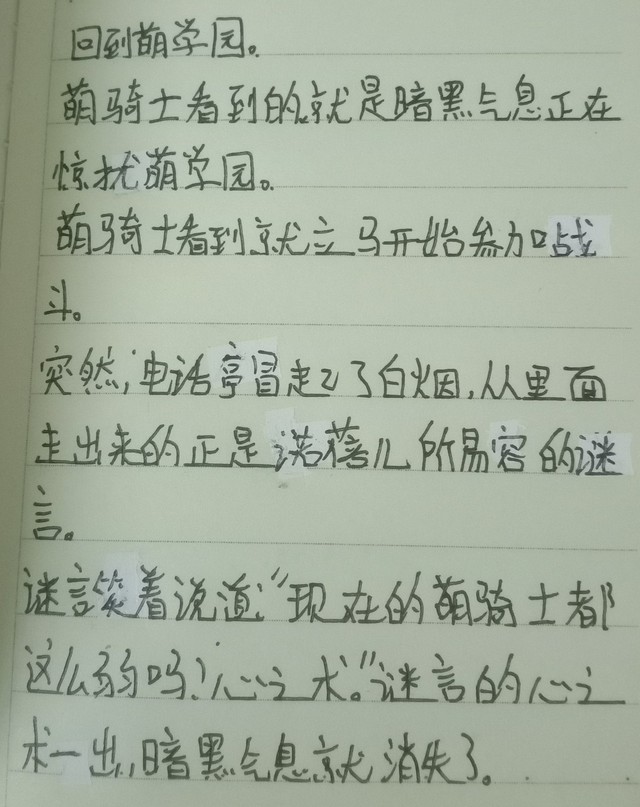 回到萌学园。
萌骑士看到的就是暗黑气息正在
惊扰萌学园。
萌骑士看到就立马开始参加战
斗。
突然,电话亭冒起了白烟,从里面
走出来的正是诺蓓儿所易容的谜
言。
谜言笑着说道:“现在的萌骑士都
这么弱吗?心之术。”谜言的心之
术一出,暗黑气息就消失了。